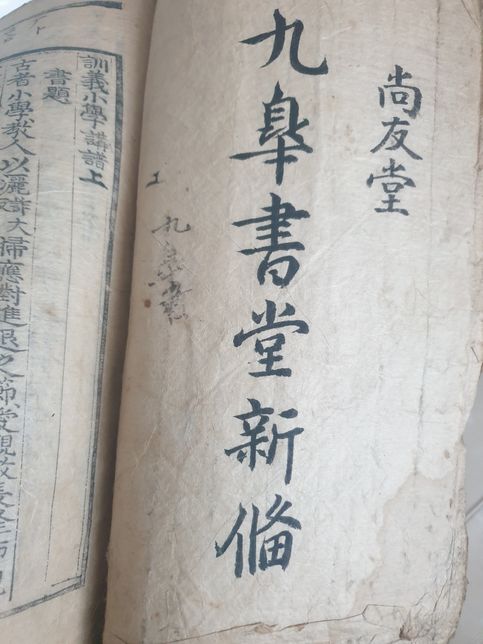 尚友堂
九皐書堂新俻
訓義小學講譜上
書題
古者小學教人以灑掃應對進退之節愛親敬長隆師